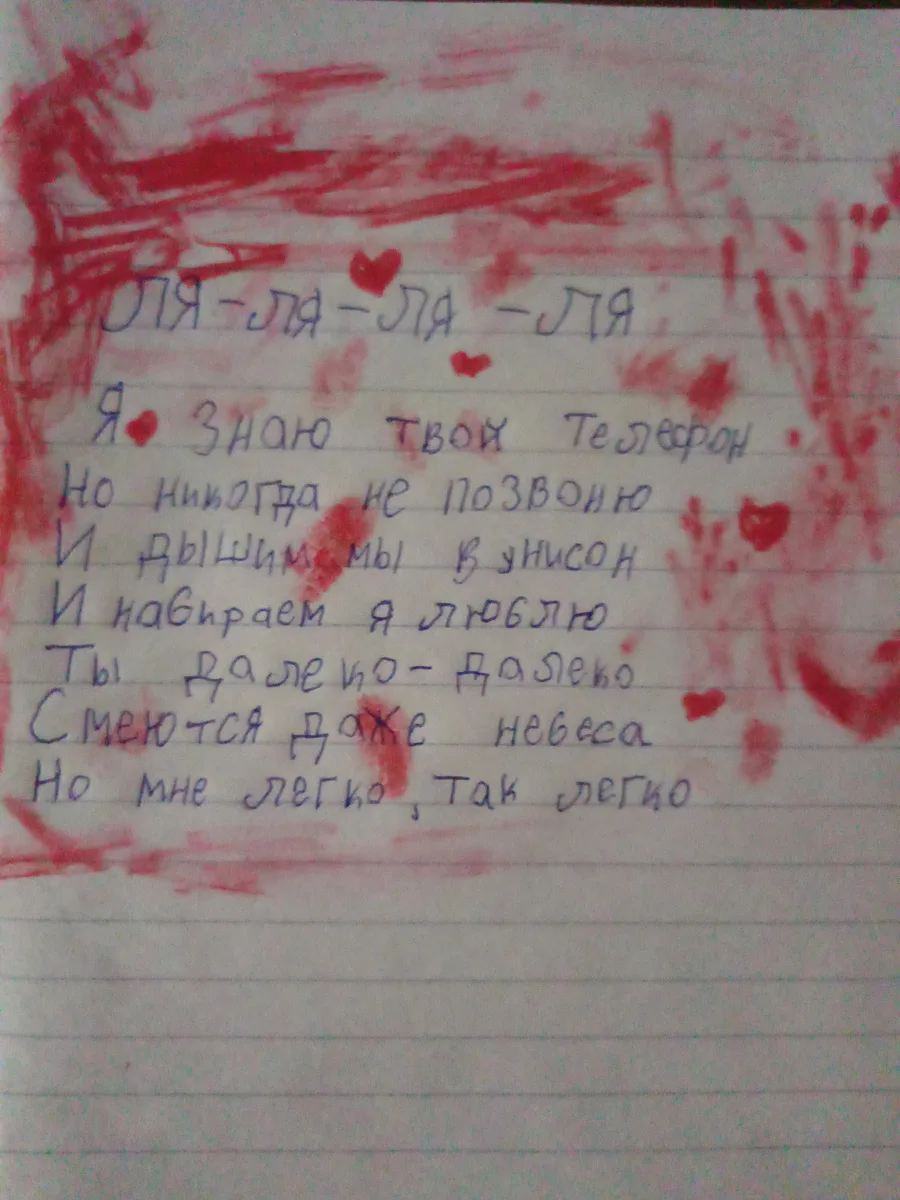 ЛЯ - ЛЯ - ЛЯ - ЛЯ
Я знаю твой телефон
Но никогда не позвоню
И дышим мы в унисон
И набираем я люблю
Ты далеко - далеко
Смеются даже небеса
Но мне легко, так легко